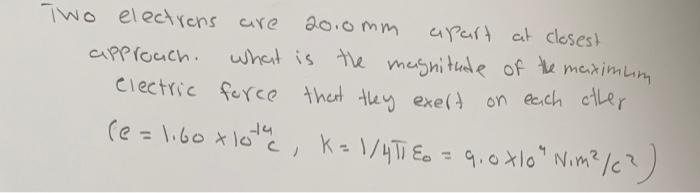 Two electrons are 20.0mm apart at closest
approach. what is the magnitude of the maximum
electric force that they exert on each other
(e = 1.60 x 10⁻¹⁹c, K = 1/4πε₀ = 9.0x10⁹ N.m²/c²)